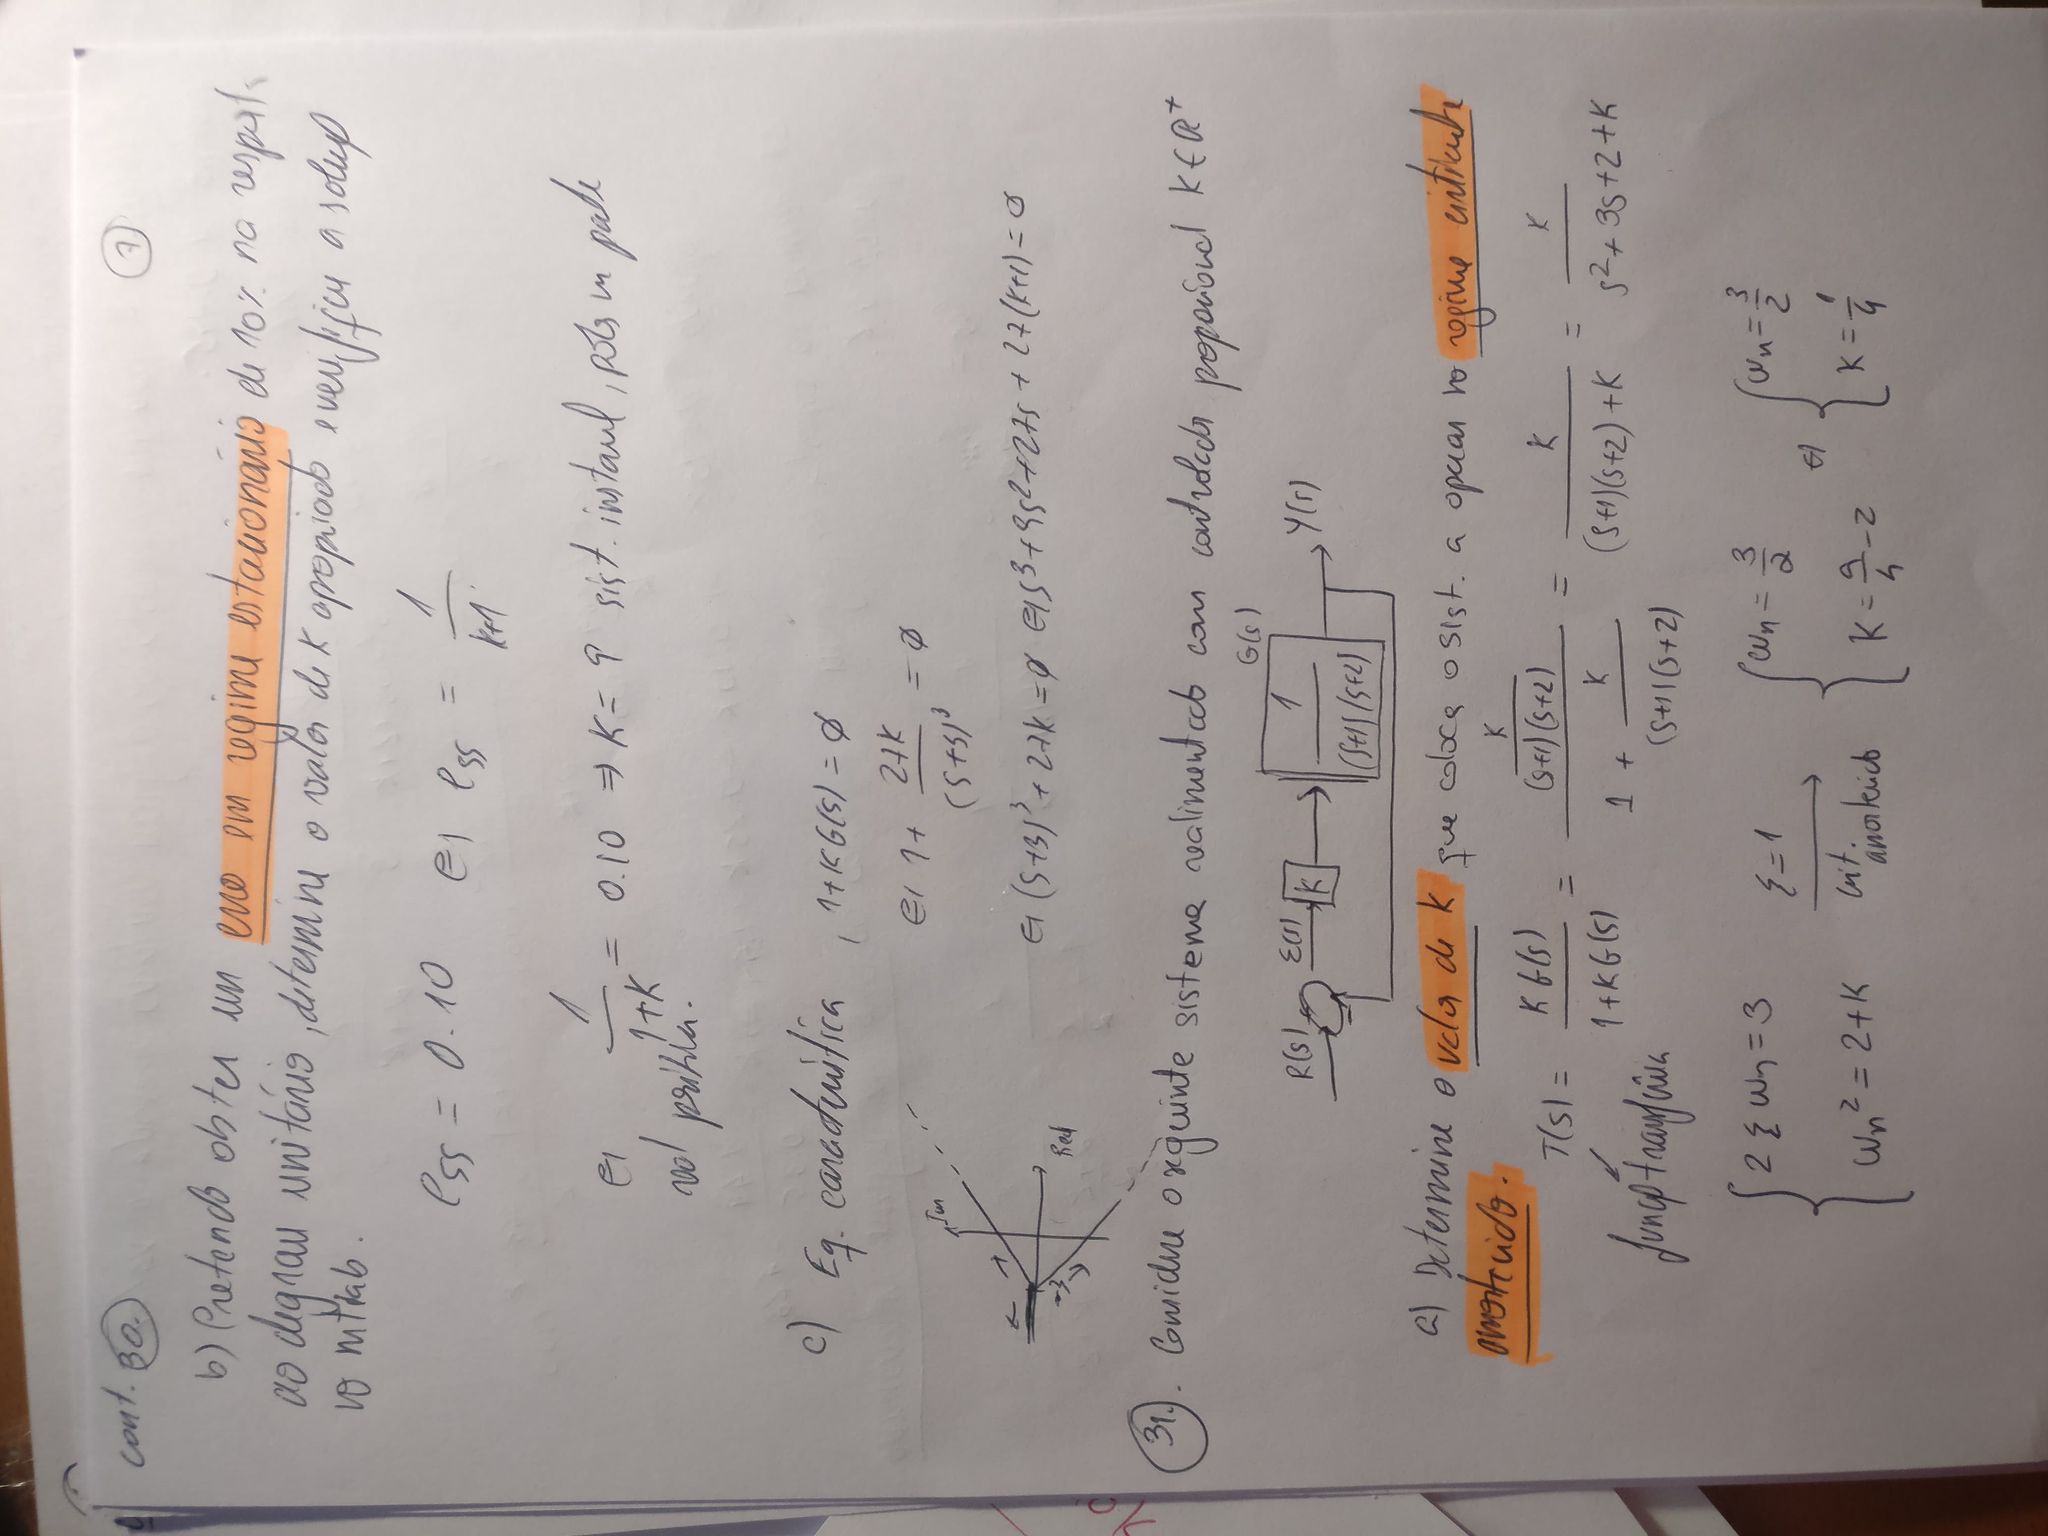 cont. 30.
7
b) Pretendo obter um erro em regime estacionário de 10% na respost.
ao degrau unitário, determine o valor de K apropriado e verifique a soluç
no mtlab.
ess = 0.10 ⇔ ess = 1/(K+1)
⇔ 1/(1+K) = 0.10 ⇒ K = 9 sist. instavel, pois
c) Eq. característica, 1+KG(s) = ∅
⇔ 1 + 27K/(s+3)³ = ∅
Im
⇔ (s+3)³ + 27K = ∅ ⇔ s³+9s²+27s + 27(K+1) = ∅
-3
Real
31. Considere o seguinte sistema realimentado com controlador proporcional K ∈ ℝ⁺
G(s)
R(s) + - E(s) K 1/((s+1)(s+2)) Y(s)
a) Determine o valor de K que coloca o sist. a operar no regime criticamente
amortecido.
T(s) = KG(s)/(1+KG(s)) = (K/((s+1)(s+2)))/(1 + K/((s+1)(s+2))) = K/((s+1)(s+2)+K) = K/(s²+3s+2+K)
funç transferência
{ 2ξωn = 3 ξ=1 { ωn = 3/2 ⇔ { ωn = 3/2
ωn² = 2+K crit. amortecido K = 9/4 - 2 K = 1/4